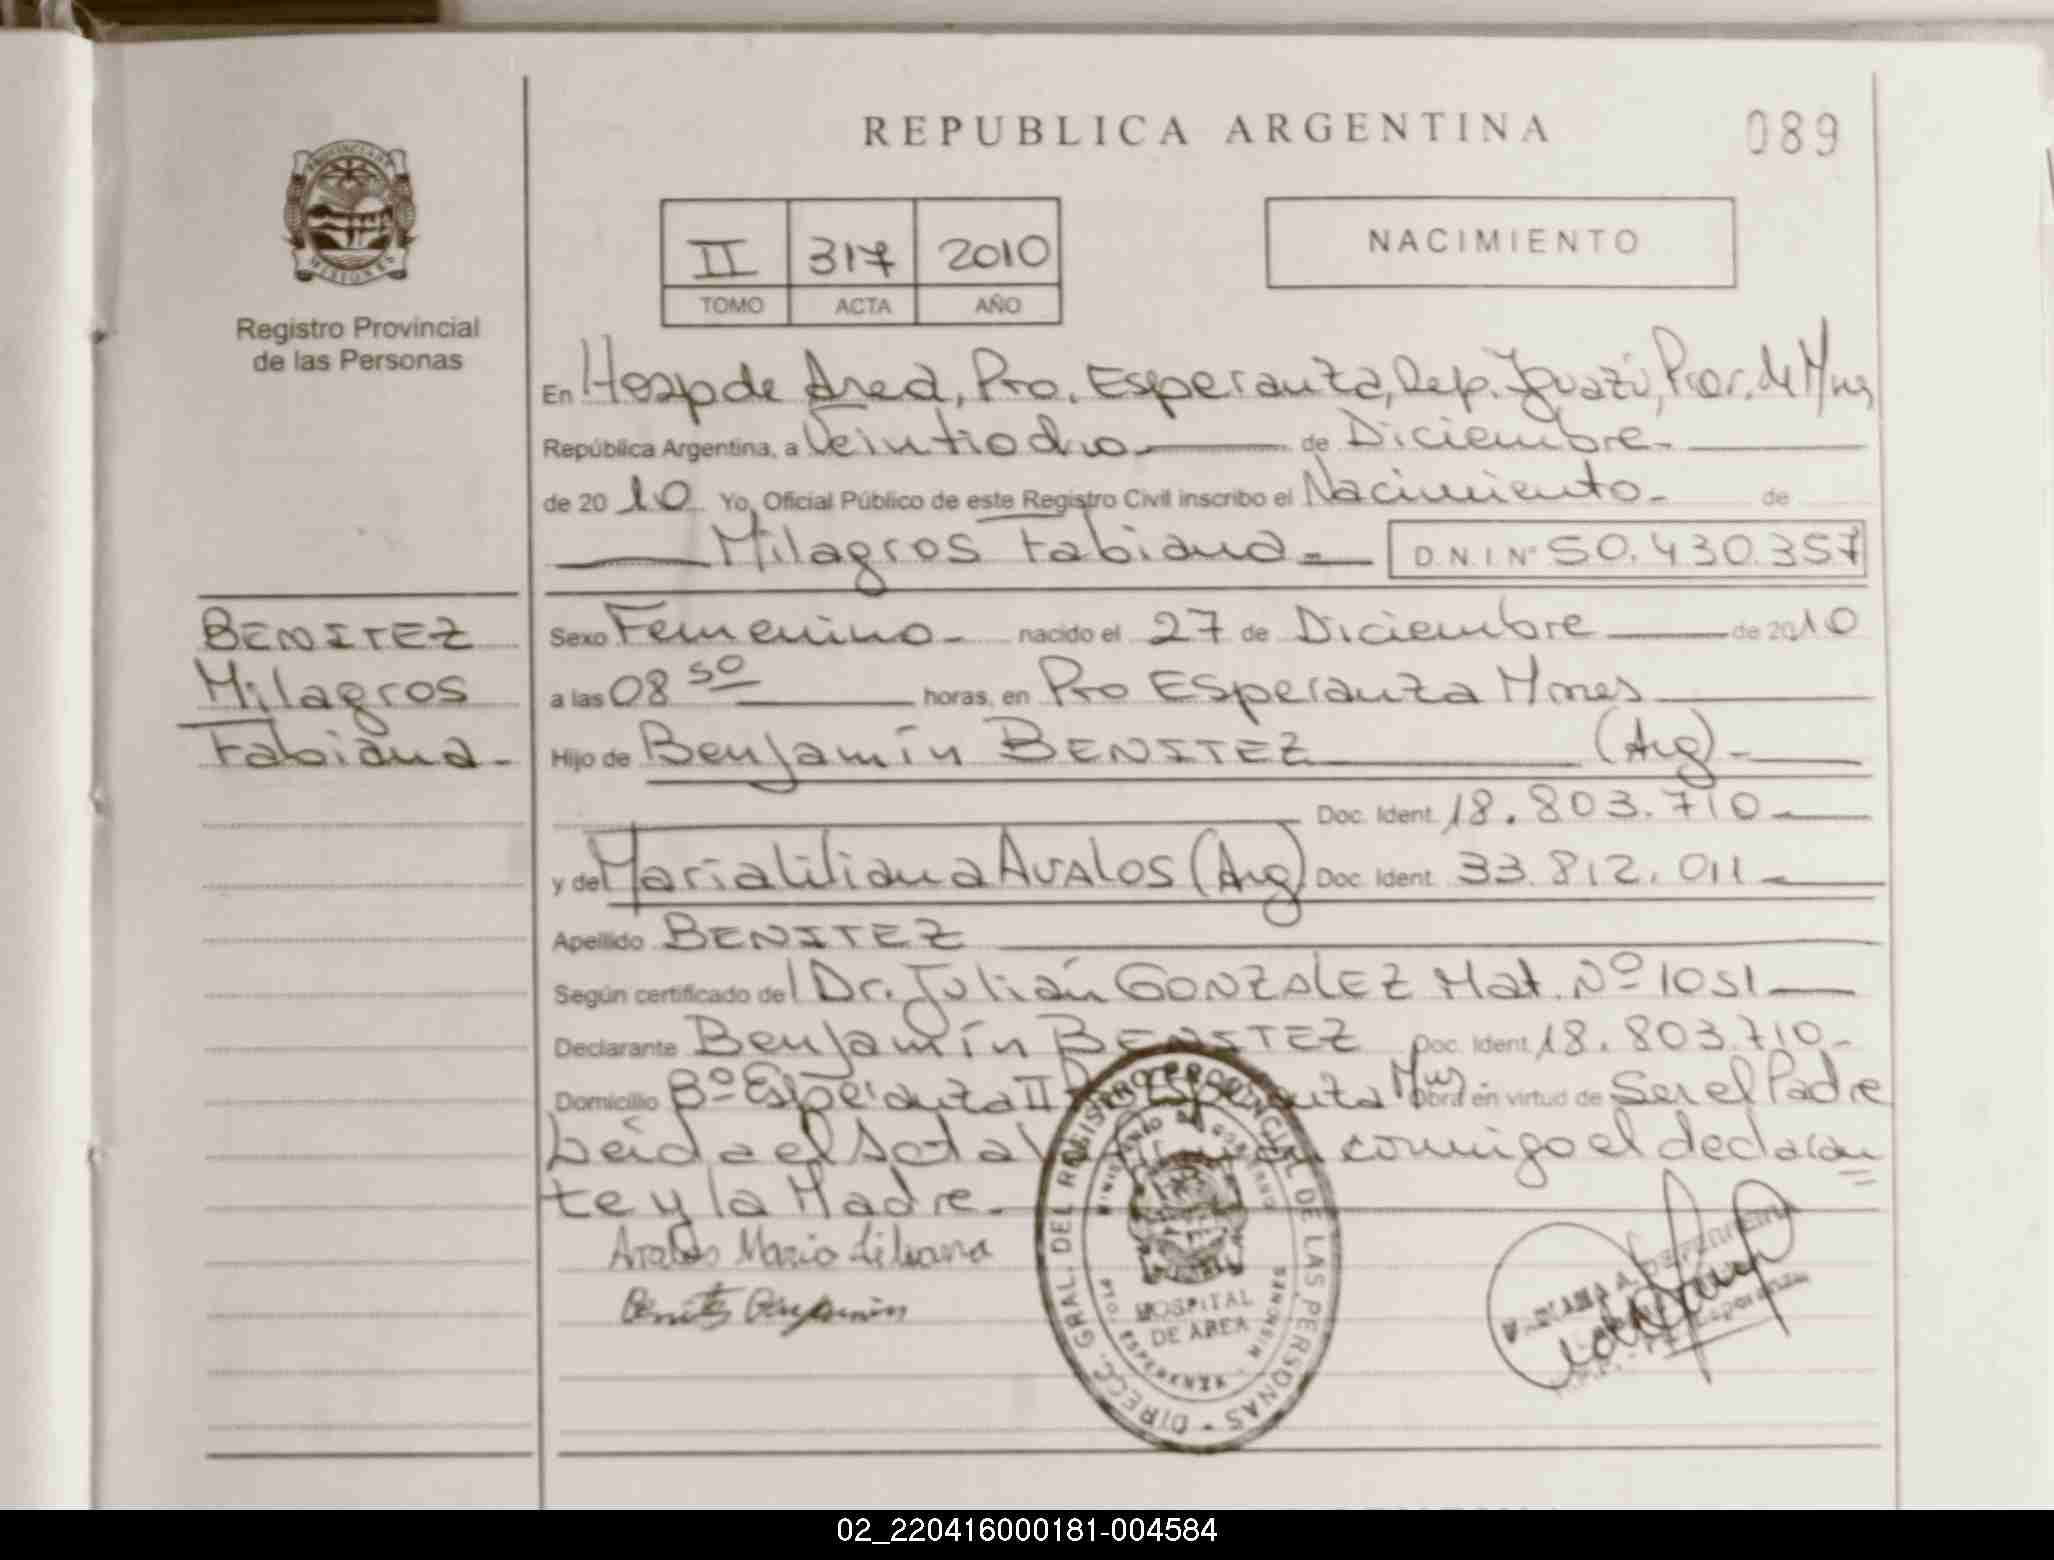 REPUBLICA ARGENTINA
089
PROVINCIA DE MISIONES
Registro Provincial
de las Personas
II 317 2010
TOMO ACTA AÑO
NACIMIENTO
En Hosp de Area, Pto. Esperanza, Dep. Iguazú, Prov. de Mnes
República Argentina, a Veintiocho de Diciembre
de 2010 Yo, Oficial Público de este Registro Civil inscribo el Nacimiento de
Milagros Fabiana D.N.I.N° 50.430.357
BENITEZ
Milagros
Fabiana
Sexo Femenino nacido el 27 de Diciembre de 2010
a las 08 50 horas, en Pto Esperanza Mnes
Hijo de Benjamín BENITEZ (Arg)
Doc. Ident. 18.803.710
y de María Liliana AVALOS (Arg) Doc. Ident. 33.812.011
Apellido BENITEZ
Según certificado del Dr. Julián GONZALEZ Mat. Nº 1051
Declarante Benjamín BENITEZ Doc. Ident. 18.803.710
Domicilio Bº Esperanza II Esperanza Mnes Obra en virtud de Ser el Padre
Leida el Acta conmigo el declaran
te y la Madre.
Avalos Maria Liliana
Benitez Benjamin
DIRECC. GRAL. DEL REGISTRO PROVINCIAL DE LAS PERSONAS
MINISTERIO DE GOBIERNO
HOSPITAL
DE AREA
PTO. ESPERANZA - MISIONES
02_220416000181-004584